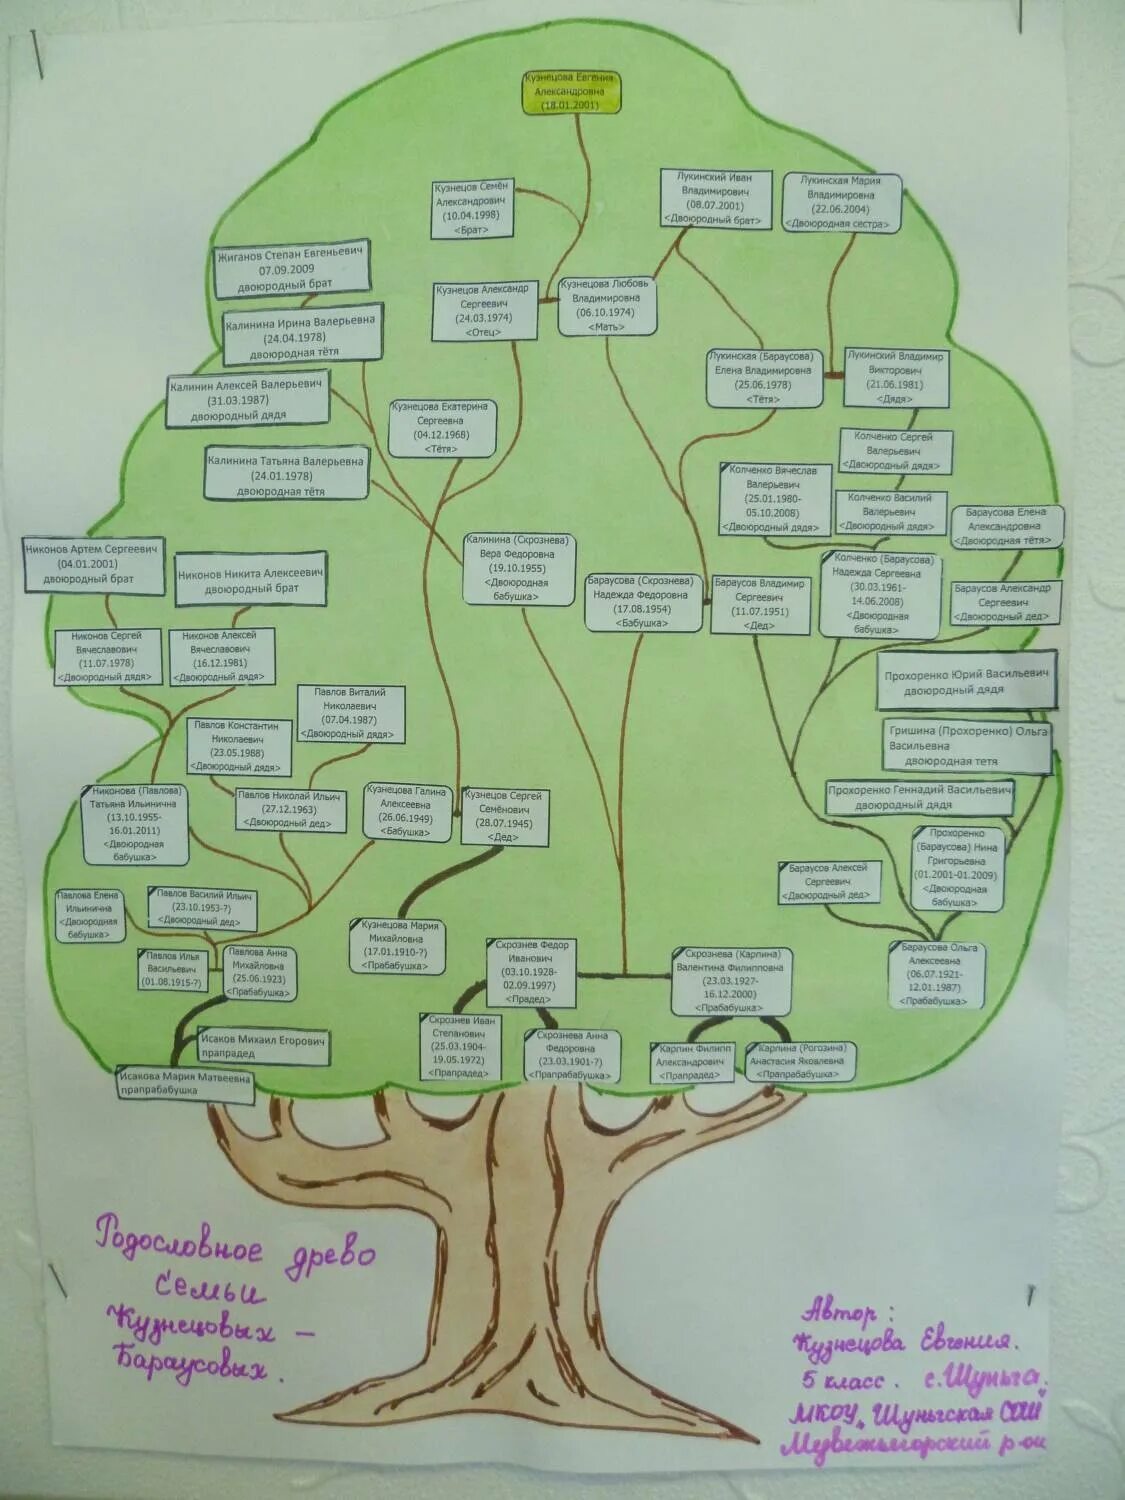 Кузнецова Евгения
Александровна
(18.01.2001)
Кузнецов Семён
Александрович
(10.04.1998)
<Брат>
Лукинский Иван
Владимирович
(08.07.2001)
<Двоюродный брат>
Лукинская Мария
Владимировна
(22.06.2004)
<Двоюродная сестра>
Жиганов Степан Евгеньевич
07.09.2009
двоюродный брат
Кузнецов Александр
Сергеевич
(24.03.1974)
<Отец>
Кузнецова Любовь
Владимировна
(06.10.1974)
<Мать>
Калинина Ирина Валерьевна
(24.04.1978)
двоюродная тётя
Лукинская (Бараусова)
Елена Владимировна
(25.06.1978)
<Тётя>
Лукинский Владимир
Викторович
(21.06.1981)
<Дядя>
Калинин Алексей Валерьевич
(31.03.1987)
двоюродный дядя
Кузнецова Екатерина
Сергеевна
(04.12.1968)
<Тётя>
Колченко Сергей
Валерьевич
<Двоюродный дядя>
Калинина Татьяна Валерьевна
(24.01.1978)
двоюродная тётя
Колченко Вячеслав
Валерьевич
(25.01.1980-
05.10.2008)
<Двоюродный дядя>
Колченко Василий
Валерьевич
<Двоюродный дядя>
Бараусова Елена
Александровна
<Двоюродная тётя>
Никонов Артем Сергеевич
(04.01.2001)
двоюродный брат
Никонов Никита Алексеевич
двоюродный брат
Калинина (Скрознева)
Вера Федоровна
(19.10.1955)
<Двоюродная
бабушка>
Бараусова (Скрознева)
Надежда Федоровна
(17.08.1954)
<Бабушка>
Бараусов Владимир
Сергеевич
(11.07.1951)
<Дед>
Колченко (Бараусова)
Надежда Сергеевна
(30.03.1961-
14.06.2008)
<Двоюродная
бабушка>
Бараусов Александр
Сергеевич
<Двоюродный дед>
Никонов Сергей
Вячеславович
(11.07.1978)
<Двоюродный дядя>
Никонов Алексей
Вячеславович
(16.12.1981)
<Двоюродный дядя>
Прохоренко Юрий Васильевич
двоюродный дядя
Павлов Виталий
Николаевич
(07.04.1987)
<Двоюродный дядя>
Павлов Константин
Николаевич
(23.05.1988)
<Двоюродный дядя>
Гришина (Прохоренко) Ольга
Васильевна
двоюродная тетя
Никонова (Павлова)
Татьяна Ильинична
(13.10.1955-
16.01.2011)
<Двоюродная
бабушка>
Павлов Николай Ильич
(27.12.1963)
<Двоюродный дед>
Кузнецова Галина
Алексеевна
(26.06.1949)
<Бабушка>
Кузнецов Сергей
Семёнович
(28.07.1945)
<Дед>
Прохоренко Геннадий Васильевич
двоюродный дядя
Прохоренко
(Бараусова) Нина
Григорьевна
(01.2001-01.2009)
<Двоюродная
бабушка>
Бараусов Алексей
Сергеевич
<Двоюродный дед>
Павлова Елена
Ильинична
<Двоюродная
бабушка>
Павлов Василий Ильич
(23.10.1953-?)
<Двоюродный дед>
Кузнецова Мария
Михайловна
(17.01.1910-?)
<Прабабушка>
Павлов Илья
Васильевич
(01.08.1915-?)
Павлова Анна
Михайловна
(25.06.1923)
<Прабабушка>
Скрознев Федор
Иванович
(03.10.1928-
02.09.1997)
<Прадед>
Скрознева (Карпина)
Валентина Филипповна
(23.03.1927-
16.12.2000)
<Прабабушка>
Бараусова Ольга
Алексеевна
(06.07.1921-
12.01.1987)
<Прабабушка>
Исаков Михаил Егорович
прапрадед
Исакова Мария Матвеевна
прапрабабушка
Скрознев Иван
Степанович
(25.03.1904-
19.05.1972)
<Прапрадед>
Скрознева Анна
Федоровна
(23.03.1901-?)
<Прапрабабушка>
Карпин Филипп
Александрович
<Прапрадед>
Карпина (Рогозина)
Анастасия Яковлевна
<Прапрабабушка>
Родословное древо
семьи
Кузнецовых –
Бараусовых.
Автор:
Кузнецова Евгения.
5 класс. с. Шуньга.
МКОУ „Шуньгская СОШ"
Медвежьегорский р-он